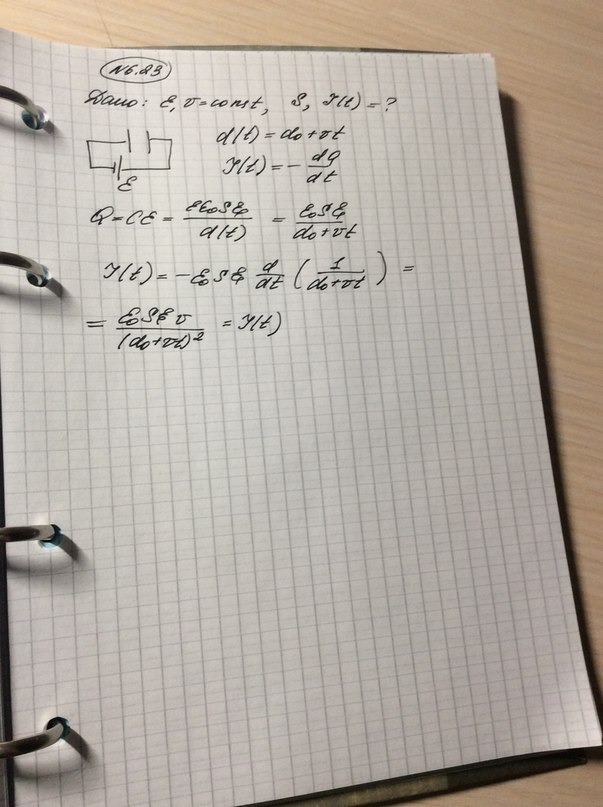 N6.23
Дано: ℰ, v=const, S, I(t)=?
d(t)=d₀+vt
I(t)=-dQ/dt
ℰ
Q=Cℰ= εε₀Sℰ/d(t) = ε₀Sℰ/(d₀+vt)
I(t)= -ε₀Sℰ d/dt (1/(d₀+vt)) =
= ε₀Sℰv/(d₀+vt)² = I(t)